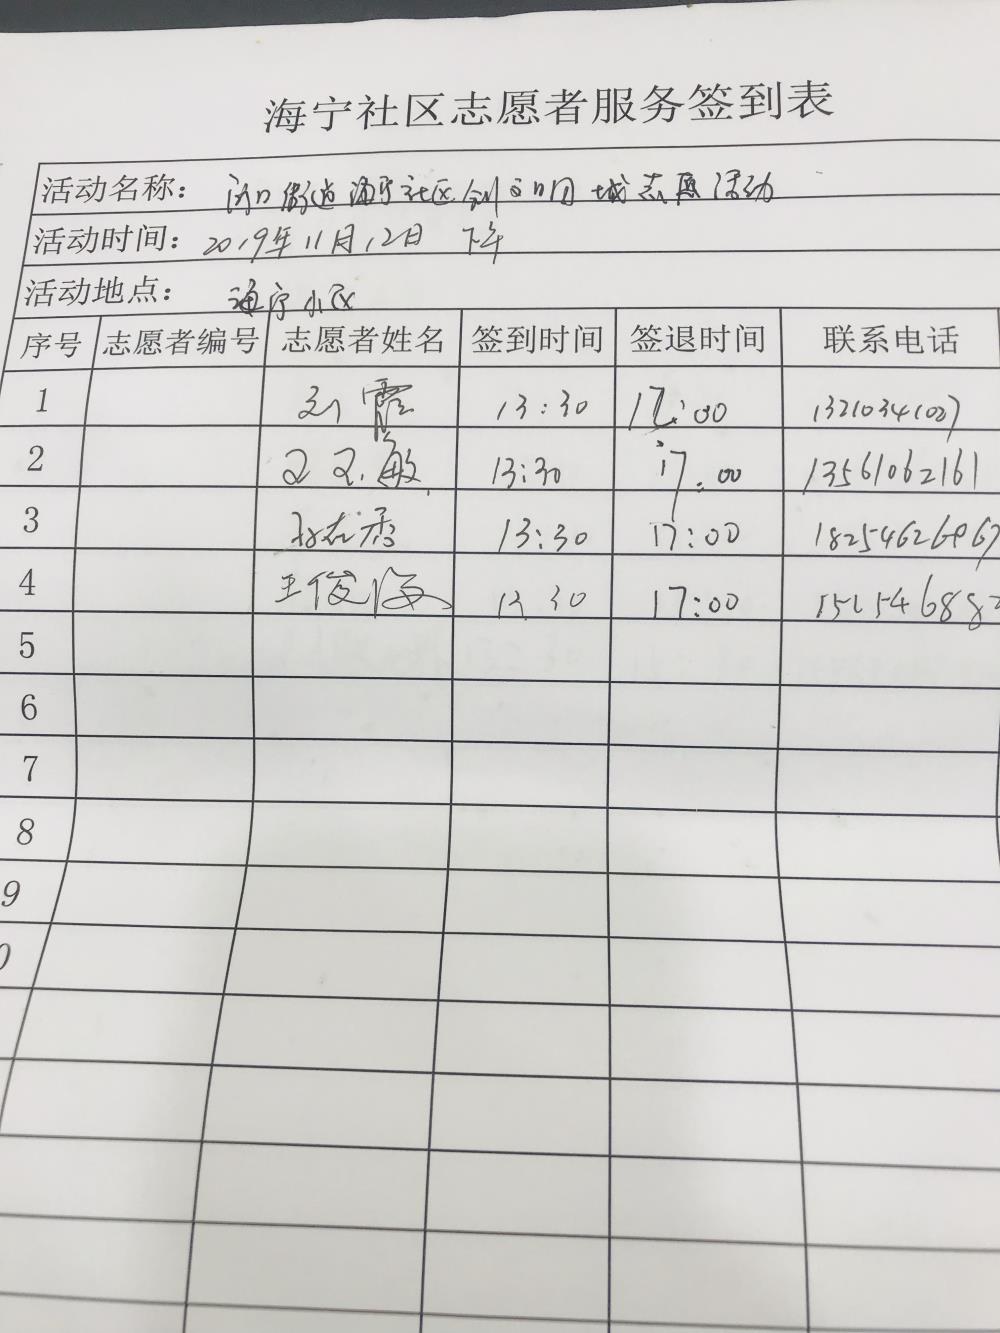 海宁社区志愿者服务签到表
活动名称： 街道海宁社区创文明城志愿活动
活动时间：2019年11月12日 下午
活动地点： 海宁小区
序号 志愿者编号 志愿者姓名 签到时间 签退时间 联系电话
1 刘霞 13:30 17:00 13210341027
2 敏 13:30 17:00 13561062161
3 香 13:30 17:00
4 王俊海 13 30 17:00
5
6
7
8
9
0